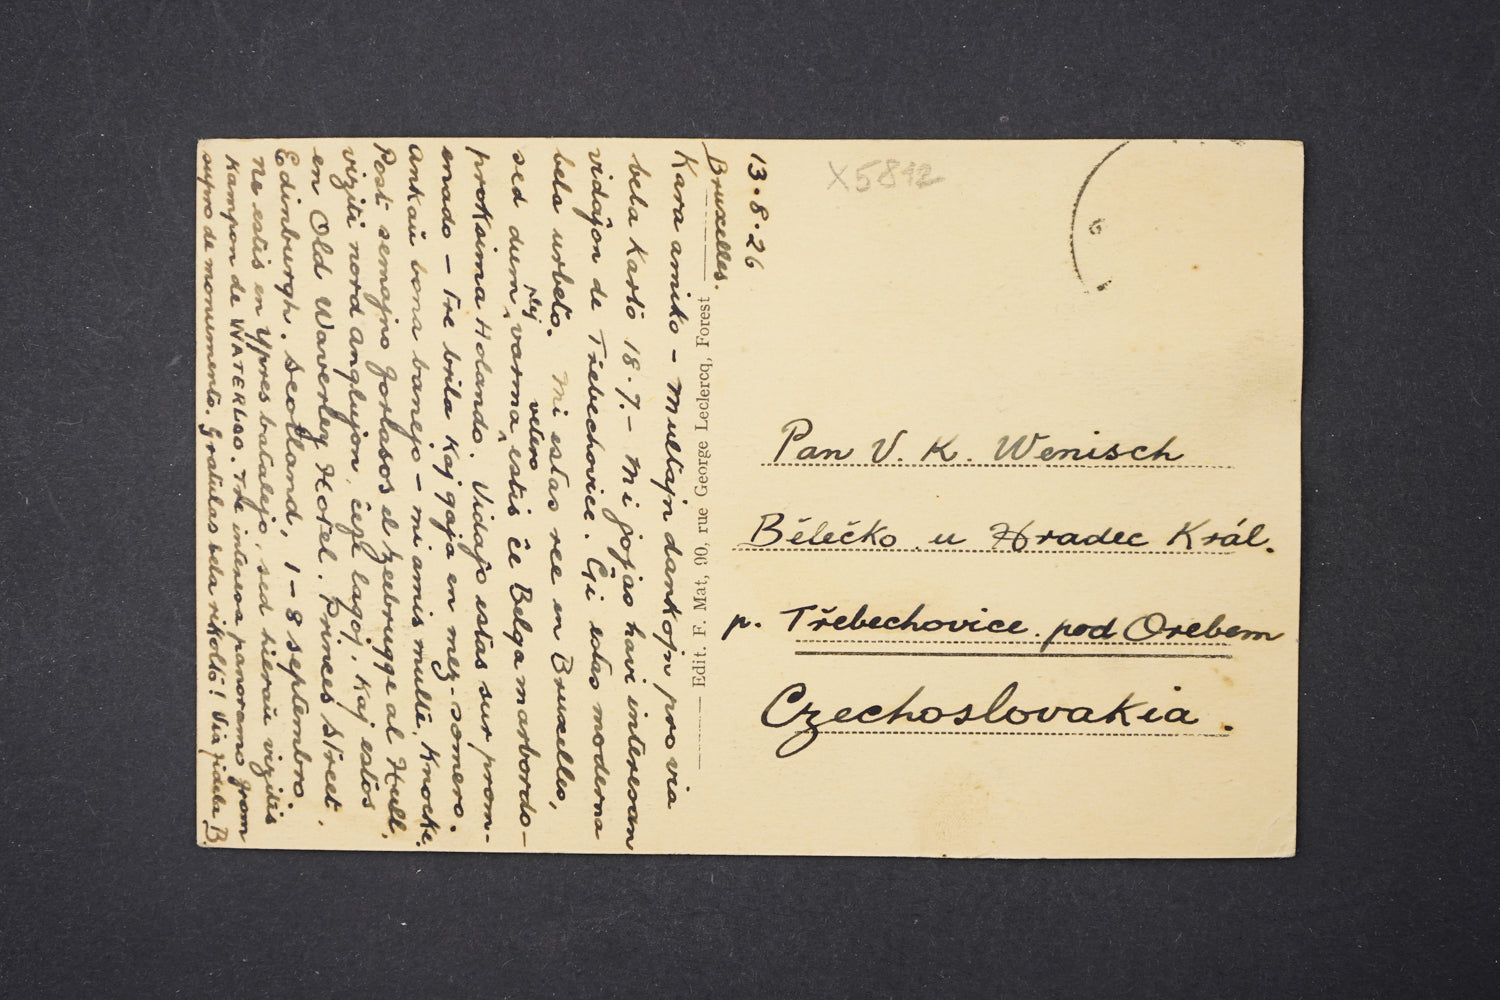 13.8.26
Bruxelles.
Kara amiko - Multajn dankojn pro via
bela Karto 18.7. - Mi ĝojas havi interesan
vidaĵon de Třebechovice. Ĝi estas moderna
bela urbeto. Mi estas ree en Bruxelles,
sed dum plej varma vetero estis ĉe Belga marbordo-
proksima Holando. Vidaĵo estas sur prom-
enado - tre brila Kaj gaja en mez-somero.
Ankaŭ bona banejo - mi amis multe. Knocke.
Post semajno forlasos el Zeebrugge al Hull.
viziti nord anglujon, ĉefe lagoj. Kaj estos
en Old Waverley Hotel. Princes Street.
Edinburgh. Scotland, 1-8 septembro.
Ne estis en Ypres batalejo, sed hieraŭ vizitis
Kampon de WATERLOO. Tre interesa panoramo from
supro de monumento. Gratulas bela rikolto! Via fidela B.
Edit. F. Mat, 90, rue George Leclercq, Forest
X5812
6
Pan V. K. Wenisch
Bělečko u Hradec Král.
p. Třebechovice pod Orebem
Czechoslovakia.